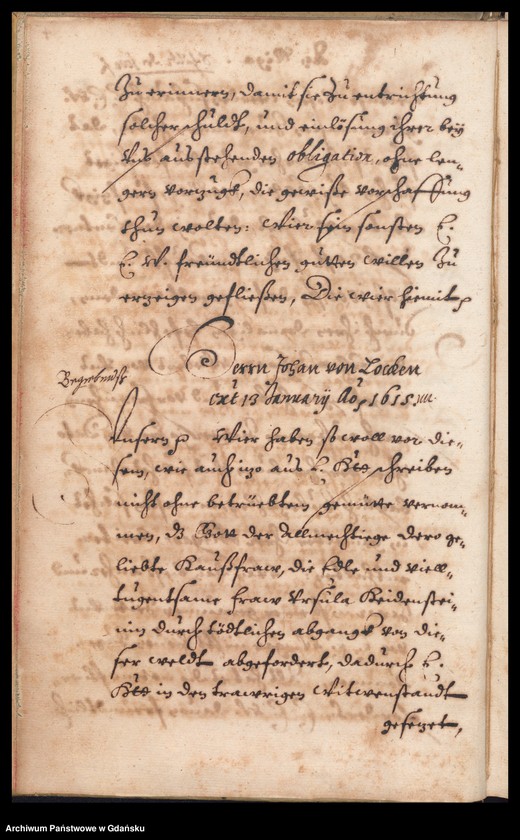 Zu erinnern, damit sie Zu entrichtung
solcher schuldt, und einlösung ihrer bey
Uns ausstehenden obligation, ohne len-
gern vorzugk, die gewiße vorschaffung
thun wolten: Wier sein sonsten E.
E. W. freündtlichen gutten willen Zu
erzeigen gefließen, Die wier hiemit
Herrn Johan von Locken
ext 13 January Ao 1615.
Begrebnuß
Unsern Wier haben so woll vor die-
sem, wie auch izo aus E. schreiben
nicht ohne betrüebtem gemütte vernom-
men, dz Gott der Allmechtiege dero ge-
liebte Haußfraw, die Edle und viell-
tugentsame fraw Ursula Keidenstei-
nin durch tödtlichen abgangk von die-
ser weldt abgefordert, dadurch E.
in den trawrigen Witwenstandt
gesezet,
Archiwum Państwowe w Gdańsku